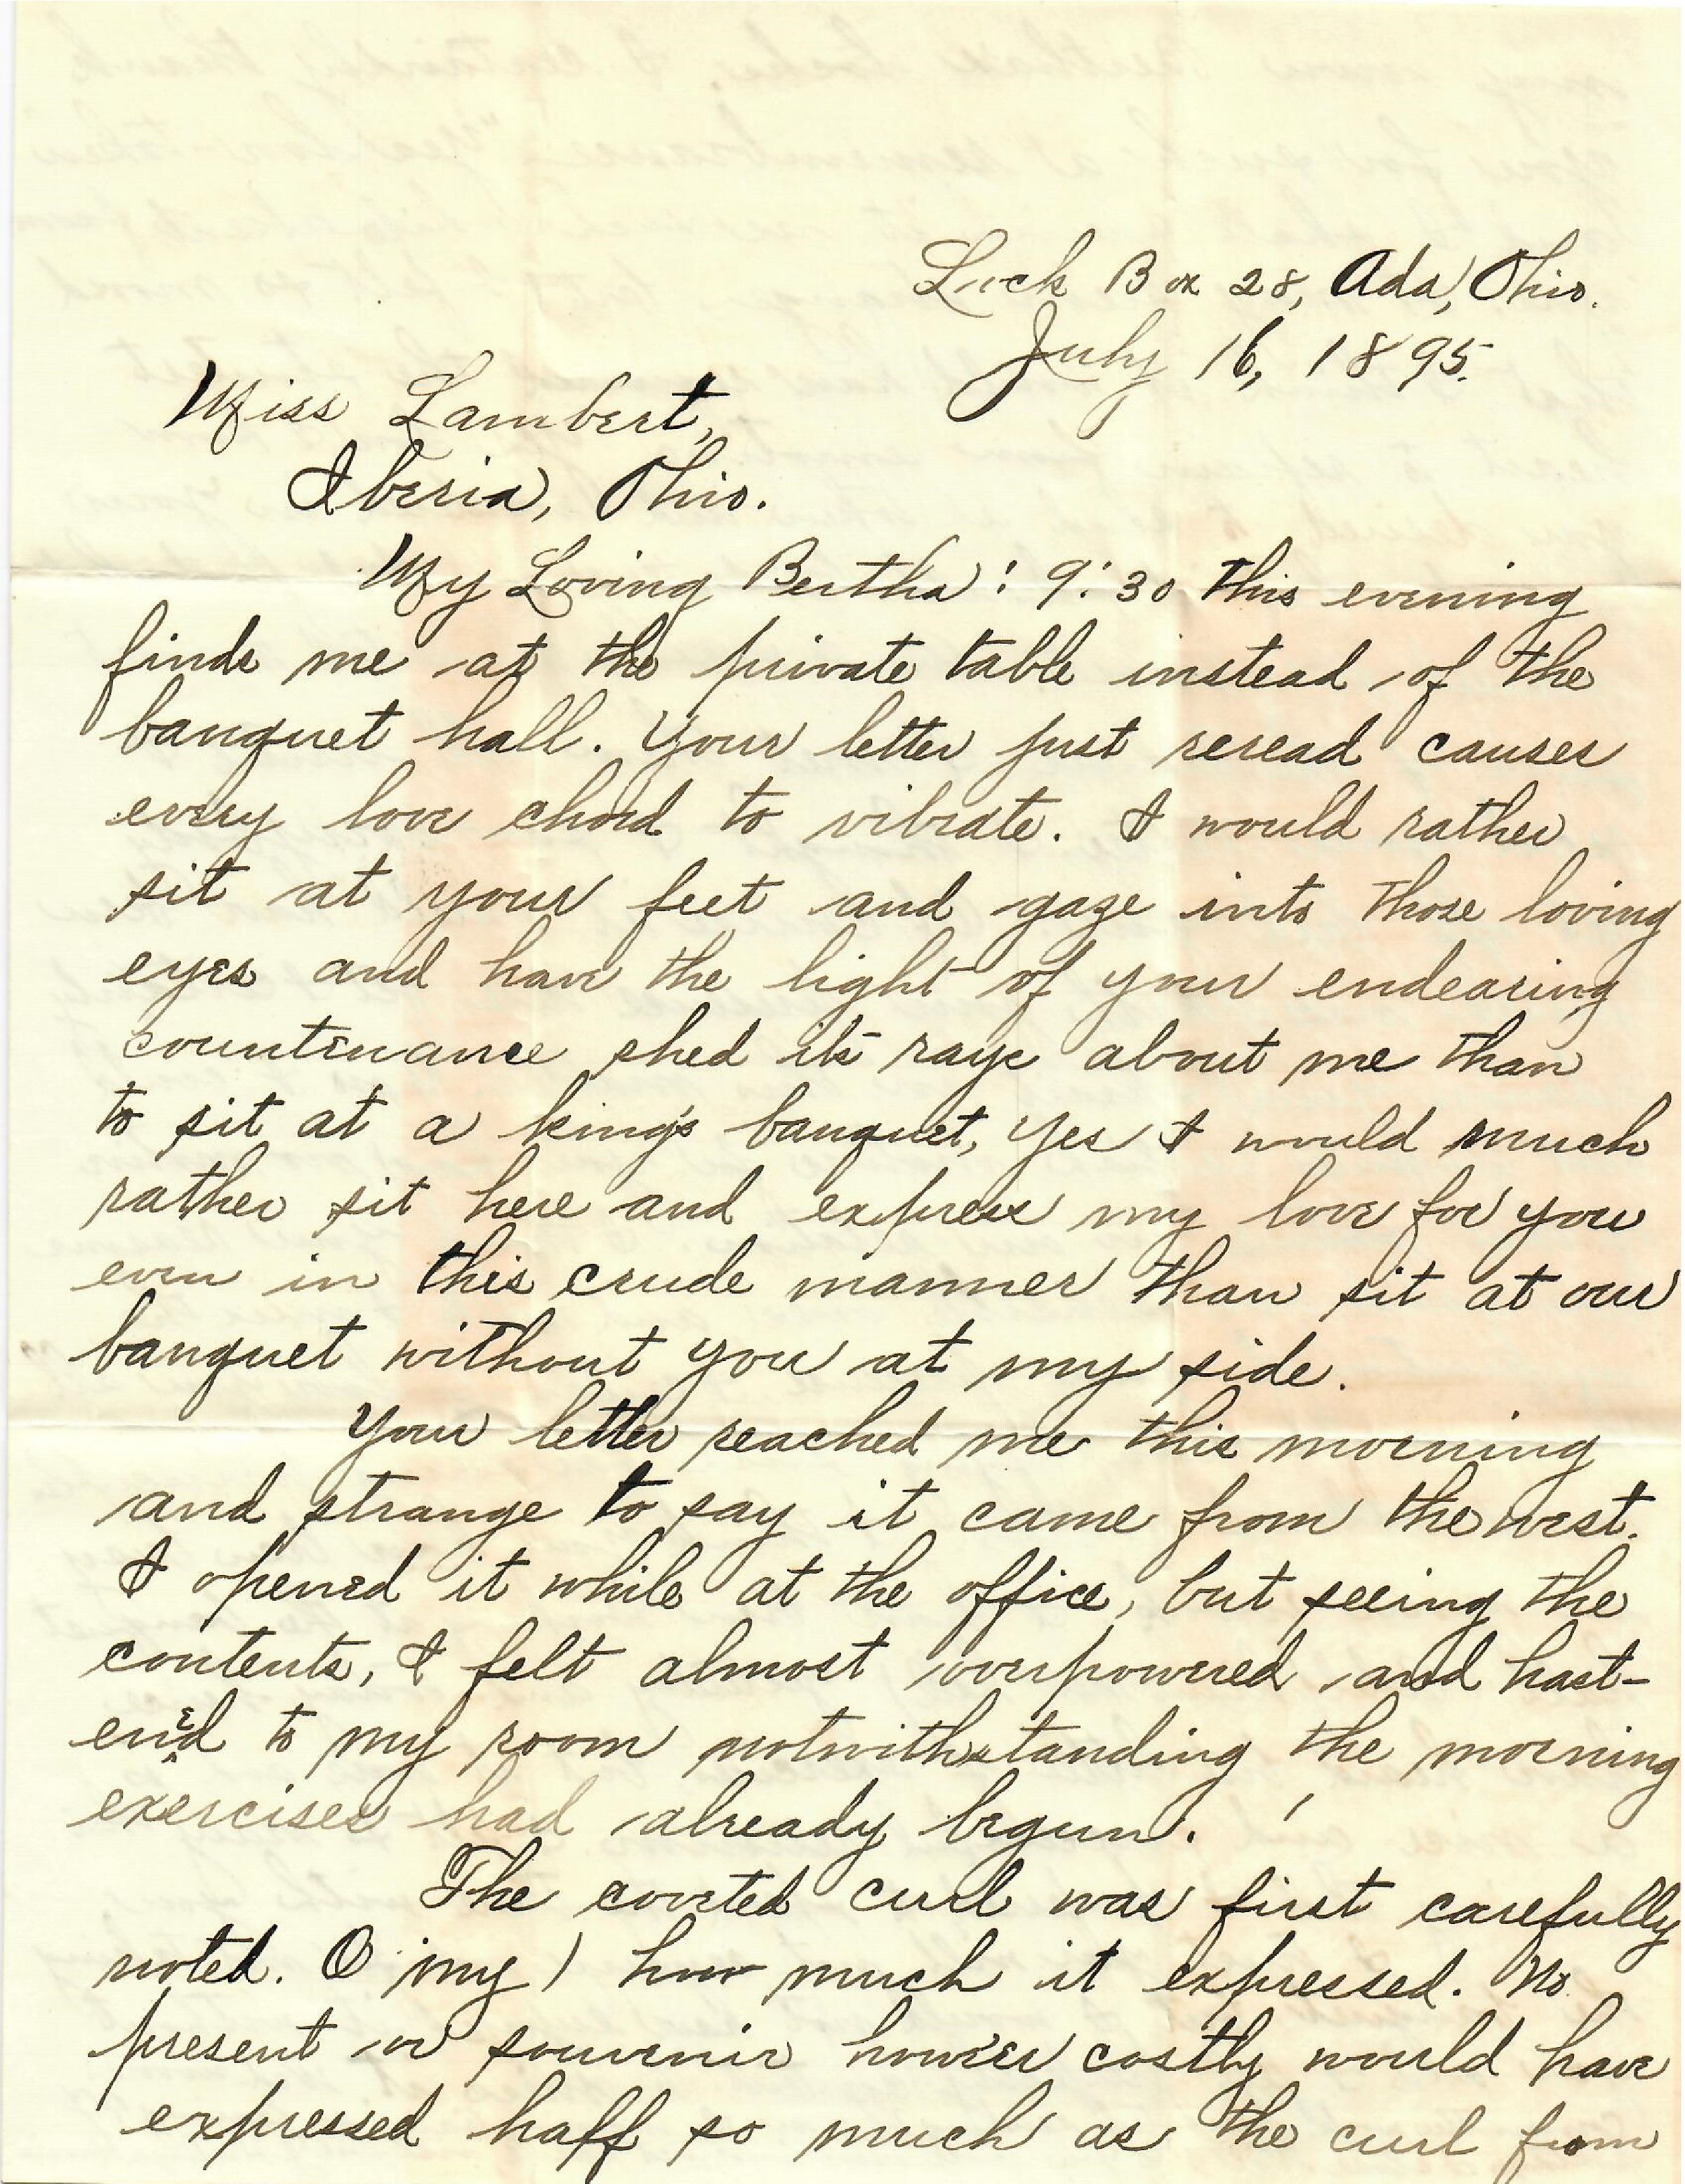 Lock Box 28, Ada, Ohio.
July 16, 1895.
Miss Lambert,
Iberia, Ohio.
My Loving Bertha: 9:30 this evening
finds me at the private table instead of the
banquet hall. Your letter just reread causes
every love chord to vibrate. I would rather
sit at your feet and gaze into those loving
eyes and have the light of your endearing
countenance shed its rays about me than
to sit at a king's banquet, yes I would much
rather sit here and express my love for you
even in this crude manner than sit at our
banquet without you at my side.
Your letter reached me this morning
and strange to say it came from the west.
I opened it while at the office, but seeing the
contents, I felt almost overpowered and hast-
ened to my room notwithstanding the morning
exercises had already begun.
The coveted curl was first carefully
noted. O my! how much it expressed. No
present or souvenir however costly would have
expressed half so much as the curl from